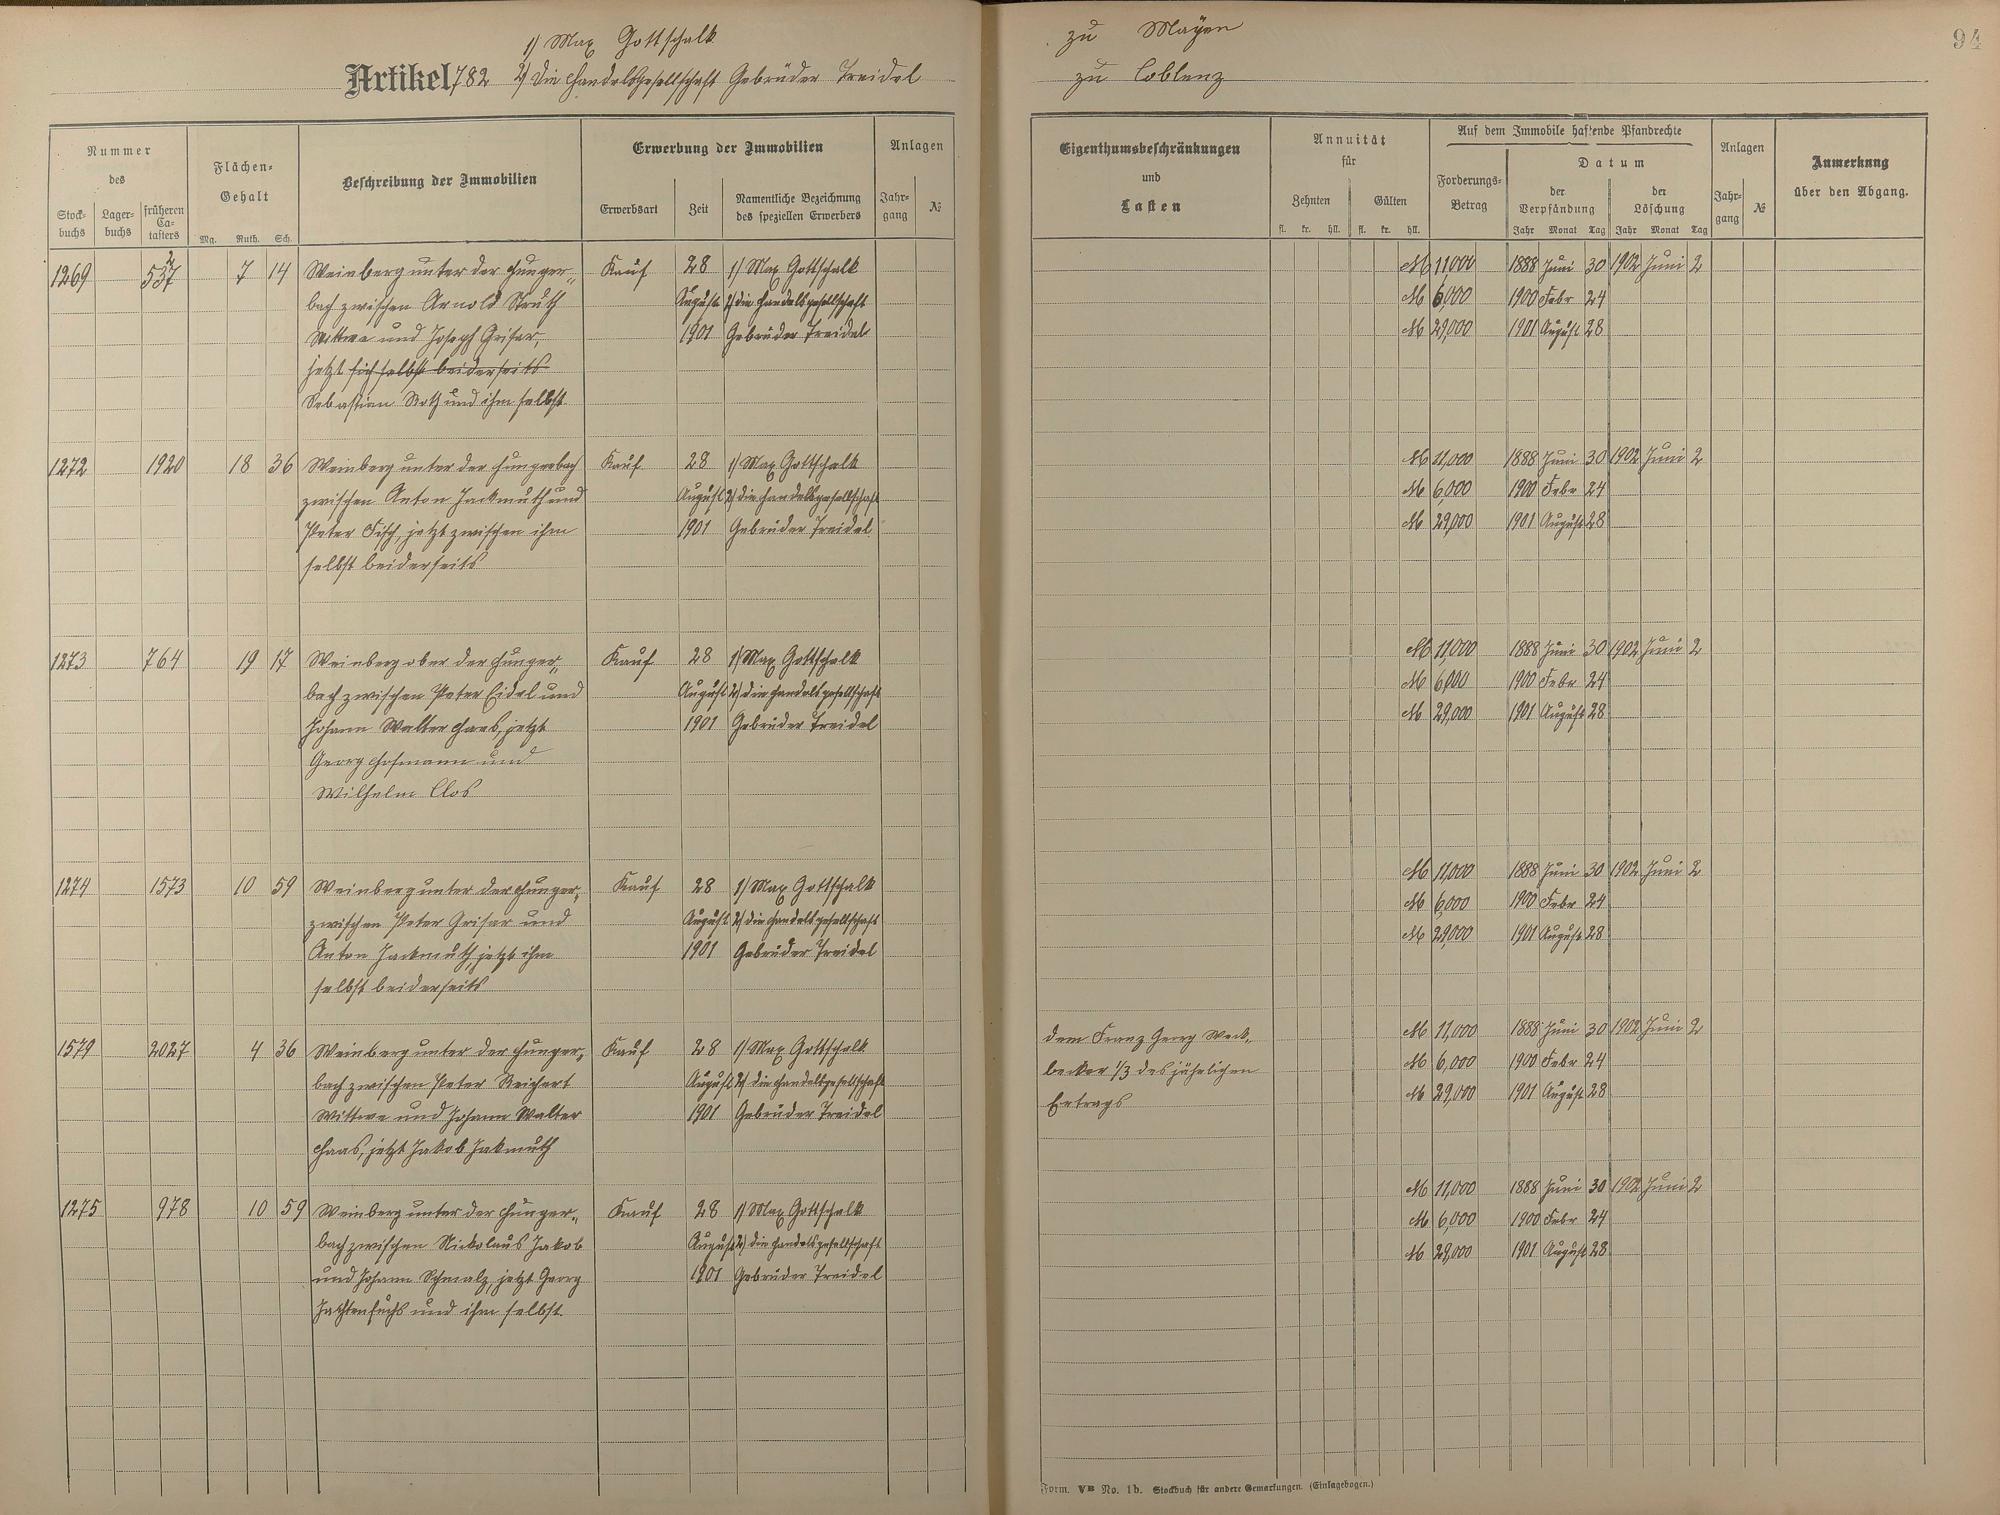 1) Max Gottschalk
Artikel 782 2) Die Handelsgesellschaft Gebrüder Treidel
zu Mayen
zu Coblenz
94
Nummer
des
Stock-
buchs
Lager-
buchs
früheren
Ca-
tasters
Flächen-
Gehalt
Mg. Ruth. Sch.
Beschreibung der Immobilien
Erwerbung der Immobilien
Erwerbsart
Zeit
Namentliche Bezeichnung
des speziellen Erwerbers
Anlagen
Jahr-
gang
№
Eigenthumsbeschränkungen
und
Lasten
Annuität
für
Zehnten
Gülten
fl. kr. hll. fl. kr. hll.
Auf dem Immobile haftende Pfandrechte
Forderungs-
Betrag
Datum
der
Verpfändung
der
Löschung
Jahr Monat Tag Jahr Monat Tag
Anlagen
Jahr-
gang
№
Anmerkung
über den Abgang.
1269 537 7 14 Weinberg unter der Hunger- Kauf 28 1) Max Gottschalk
bach zwischen Arnold Struth August 2) die Handelsgesellschaft
Wittwe und Joseph Grisar, 1901 Gebrüder Treidel
jetzt sich selbst beiderseits
Sebastian Roth und ihm selbst
M 11000 1888 Juni 30 1902 Juni 2
M 6,000 1900 Febr 24
M 29,000 1901 August 28
1272 1920 18 36 Weinberg unter der Hungerbach Kauf 28 1) Max Gottschalk
zwischen Anton Jackmuth und August 2) die Handelsgesellschaft
Peter Fisch, jetzt zwischen ihm 1901 Gebrüder Treidel
selbst beiderseits
M 11,000 1888 Juni 30 1902 Juni 2
M 6,000 1900 Febr 24
M 29,000 1901 August 28
1273 764 19 17 Weinberg ober der Hunger- Kauf 28 1) Max Gottschalk
bach zwischen Peter Eidel und August 2) die Handelsgesellschaft
Johann Walter Haas, jetzt 1901 Gebrüder Treidel
Georg Hofmann und
Wilhelm Clos
M 11,000 1888 Juni 30 1902 Juni 2
M 6,000 1900 Febr 24
M 29,000 1901 August 28
1274 1573 10 59 Weinberg unter der Hunger- Kauf 28 1) Max Gottschalk
zwischen Peter Grisar und August 2) die Handelsgesellschaft
Anton Jackmuth, jetzt ihm 1901 Gebrüder Treidel
selbst beiderseits
M 11,000 1888 Juni 30 1902 Juni 2
M 6,000 1900 Febr 24
M 29,000 1901 August 28
1579 2027 4 36 Weinberg unter der Hunger- Kauf 28 1) Max Gottschalk
bach zwischen Peter Reichert August 2) die Handelsgesellschaft
Wittwe und Johann Walter 1901 Gebrüder Treidel
Haas, jetzt Jakob Jakmuth
dem Franz Georg Weck- M 11,000 1888 Juni 30 1902 Juni 2
becker 1/3 des jährlichen M 6,000 1900 Febr 24
Ertrags M 29,000 1901 August 28
1275 978 10 59 Weinberg unter der Hunger- Kauf 28 1) Max Gottschalk
bach zwischen Nickolaus Jakob August 2) die Handelsgesellschaft
und Johann Schmalz, jetzt Georg 1901 Gebrüder Treidel
Jachtenfuchs und ihm selbst.
M 11,000 1888 Juni 30 1902 Juni 2
M 6,000 1900 Febr 24
M 29,000 1901 August 28
Form. VB No. 1b. Stockbuch für andere Gemarkungen. (Einlagebogen.)